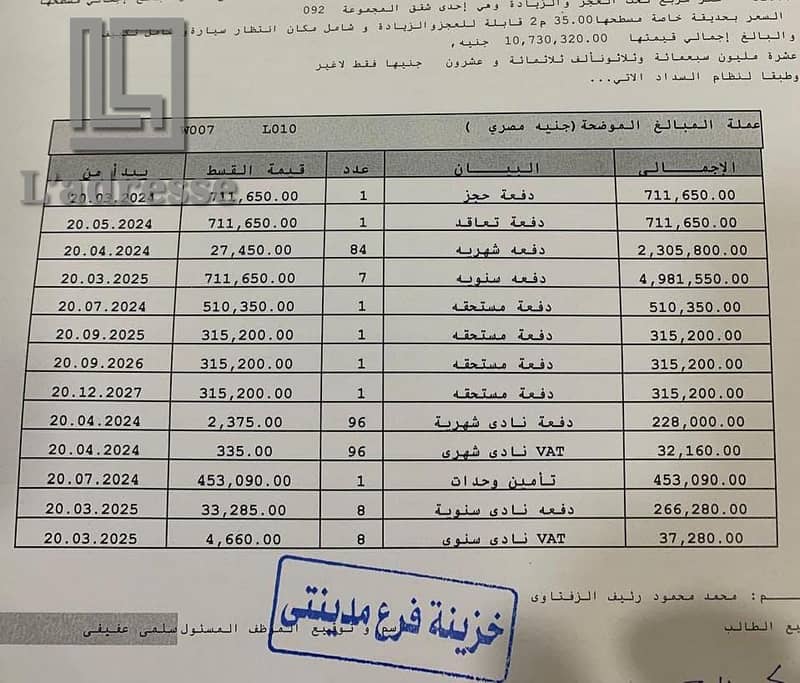 متر مربع تحت العجز والزيادة وهي إحدى شقق المجموعة 092
السعر بحديقة خاصة مسطحها 35.00 م2 قابلة للعجزوالزيادة و شامل مكان انتظار سيارة و شامل تكييف
والبالغ إجمالي قيمتها 10,730,320.00 جنيه,
عشرة مليون سبعمائة وثلاثونألف ثلاثمائة و عشرون جنيها فقط لاغير
وطبقا لنظام السداد الاتي...
عملة المبالغ الموضحة (جنيه مصري ) L010 W007
الإجمالى البيان عدد قيمة القسط يبدأ من
711,650.00 دفعة حجز 1 711,650.00 20.03.2024
711,650.00 دفعة تعاقد 1 711,650.00 20.05.2024
2,305,800.00 دفعه شهريه 84 27,450.00 20.04.2024
4,981,550.00 دفعه سنويه 7 711,650.00 20.03.2025
510,350.00 دفعة مستحقه 1 510,350.00 20.07.2024
315,200.00 دفعة مستحقه 1 315,200.00 20.09.2025
315,200.00 دفعة مستحقه 1 315,200.00 20.09.2026
315,200.00 دفعة مستحقه 1 315,200.00 20.12.2027
228,000.00 دفعة نادى شهرية 96 2,375.00 20.04.2024
32,160.00 VAT نادى شهرى 96 335.00 20.04.2024
453,090.00 تأمين وحدات 1 453,090.00 20.07.2024
266,280.00 دفعه نادى سنوية 8 33,285.00 20.03.2025
37,280.00 VAT نادى سنوى 8 4,660.00 20.03.2025
L'adresse
م: محمد محمود رئيف الزفتاوى
يع الطالب
سم و توقيع الموظف المسئول سلمى عفيفى
خزينة فرع مدينتى